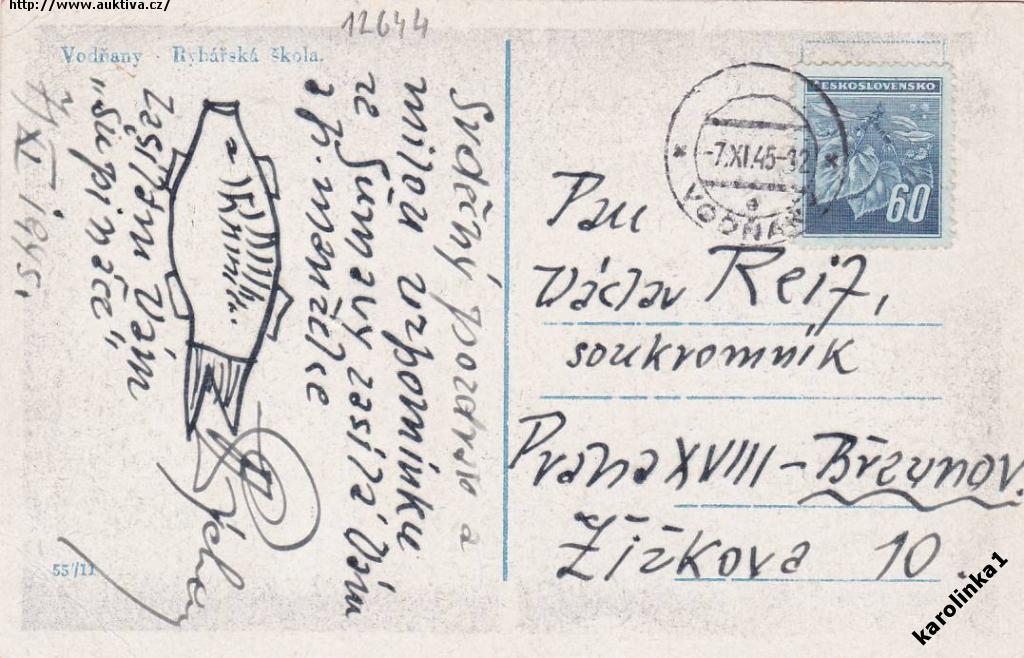 http://www.auktiva.cz/
12644
Vodňany - Rybářská škola.
Srdečný pozdrav a
milou vzpomínku
ze Šumavy zasílá Vám
a p. manželce
Zasílám Vám
„Šupináče“,
7/XI 1945.
55/11
ČESKOSLOVENSKO
60
-7.XI.45-12
VODŇANY
a
Pan
Václav Reif,
soukromník
Praha XVIII – Břevnov.
Žižkova 10.
karolinka1